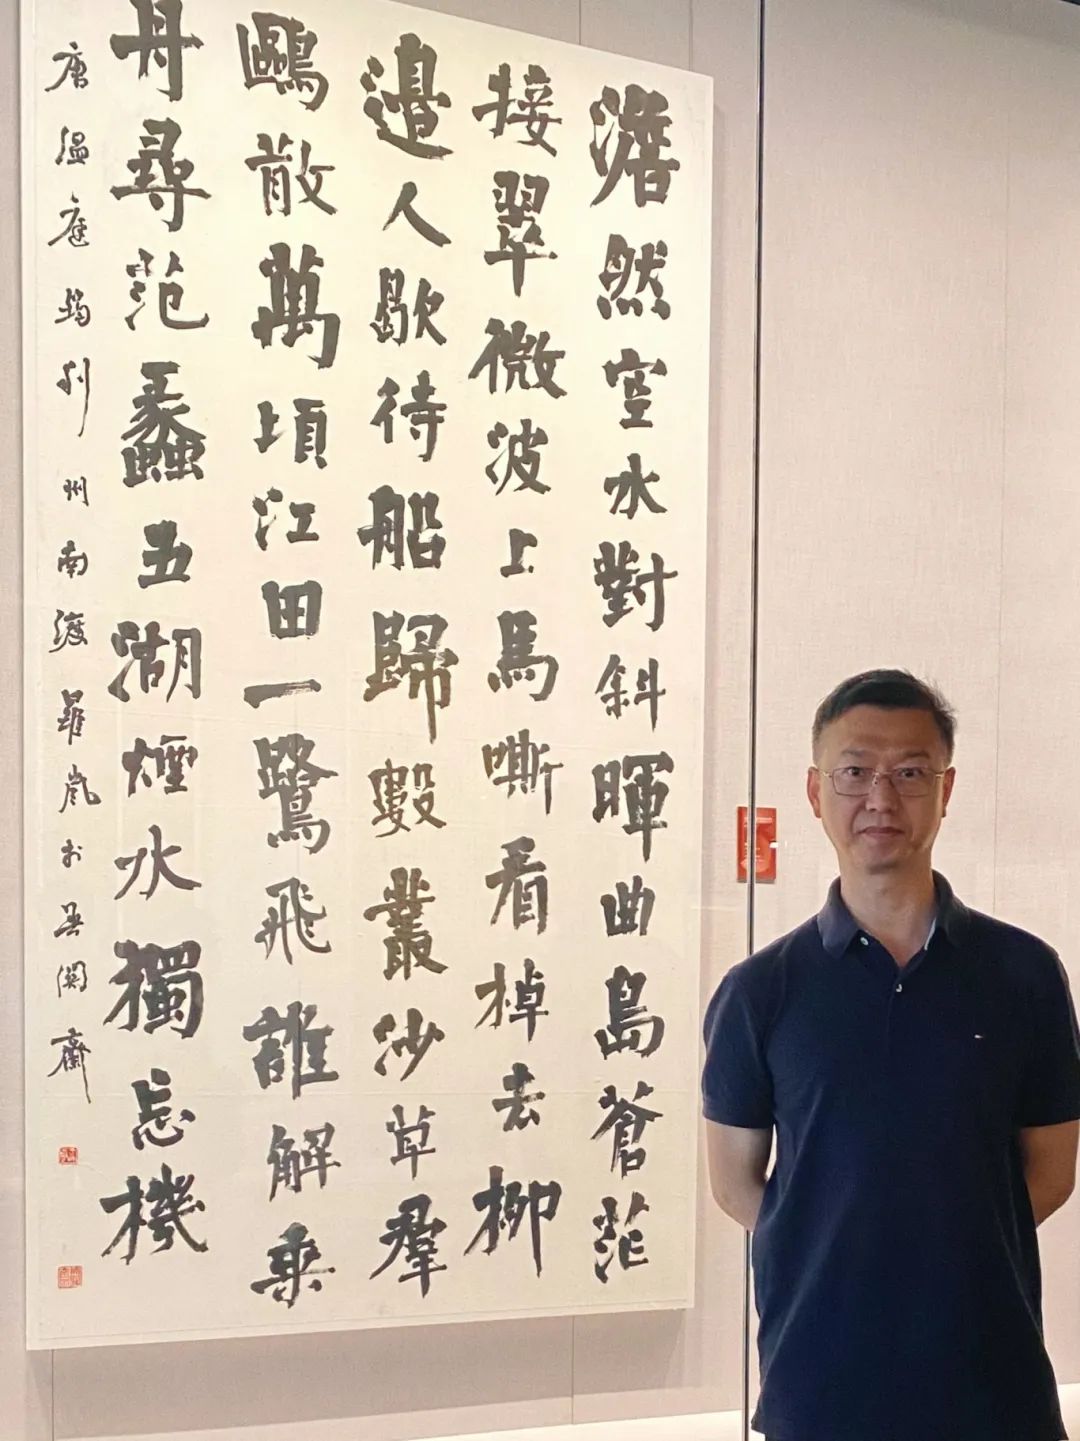 澹然空水對斜暉曲島蒼茫
接翠微波上馬嘶看棹去柳
邊人歇待船歸數叢沙草羣
鷗散萬頃江田一鷺飛誰解乘
舟尋范蠡五湖煙水獨忘機
唐温庭筠利州南渡羅嵐